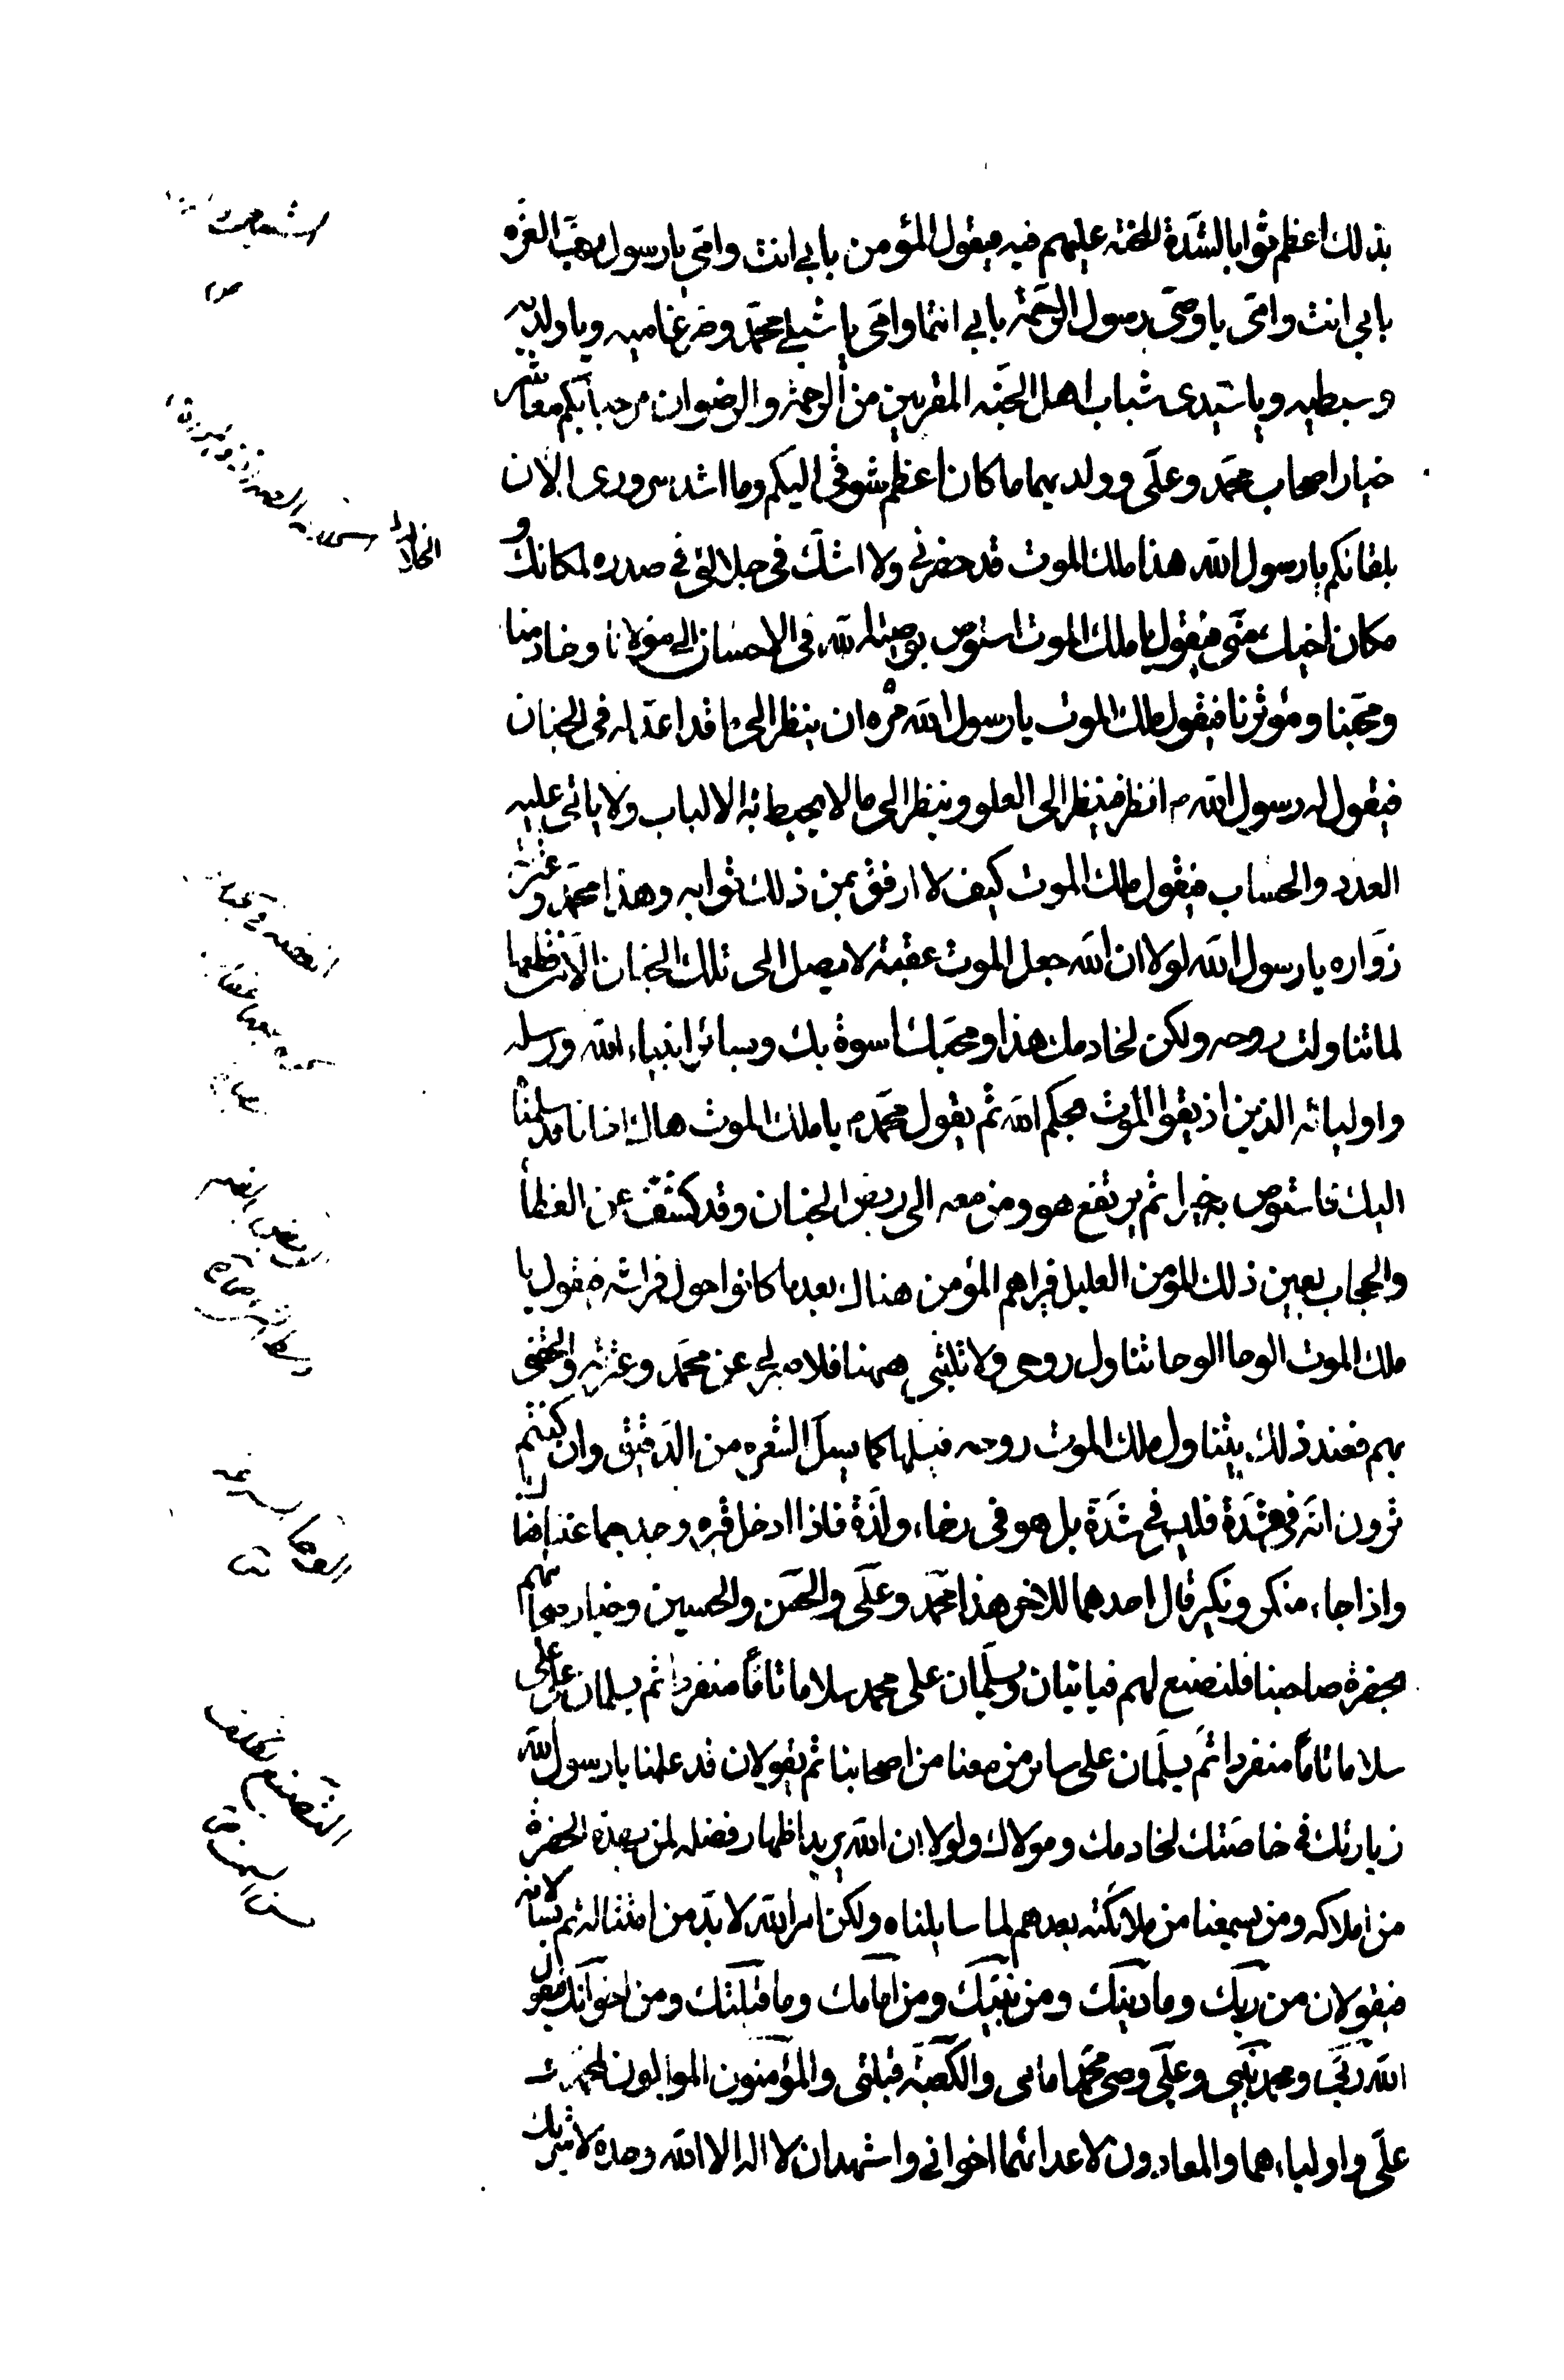 بذلك اعظم ثوابا لشدة المحنة عليهم فيه فيقول المؤمن بابي انت وامي يا رسول رب العزه
بابي انت وامي يا وصي رسول الرحمة بابي انتما وامي يا شبلي محمد وضرغاميه ويا ولديه
وسبطيه ويا سيدي شباب اهل الجنه المقربين من الرحمة والرضوان مرحبا بكم معاشر
خيار اصحاب محمد وعلي وولديهما ما كان اعظم شوقي اليكم وما اشد سروري الان
بلقائكم يا رسول الله هذا ملك الموت قد حضرني ولا اشك في جلالتي في صدره لمكانك و
مكان اخيك مني فيقول يا ملك الموت استوص بوصية الله في الاحسان الى مولانا وخادمنا
ومحبنا ومؤثرنا فيقول ملك الموت يا رسول الله مره ان ينظر الى ما قد اعد له في الجنان
فيقول له رسول الله م انظر فينظر الى العلو وينظر الى ما لا يحيط به الالباب ولا ياتي عليه
العدد والحساب فيقول ملك الموت كيف لا ارفق بمن ذلك ثوابه وهذا محمد وعترته
زواره يا رسول الله لولا ان الله جعل الموت عقبة لا يصل الى تلك الجنان الا من قطعها
لما تناولت روحه ولكن لخادمك هذا ومحبك اسوة بك وبسائر انبياء الله ورسله
واوليائه الذين اذيقوا الموت بحكم الله ثم يقول محمد م يا ملك الموت هاك اخانا قد سلمناه
اليك فاستوص به خيرا ثم يرتفع هو ومن معه الى ربض الجنان وقد كشف عن الغطاء
والحجاب بعين ذلك المؤمن العليل فيراهم المؤمن هناك بعد ما كانوا حول فراشه فيقول يا
ملك الموت الوحا الوحا تناول روحي ولا تلبثني ههنا فلا صبر لي عن محمد وعترته والحقني
بهم فعند ذلك يتناول ملك الموت روحه فيسلها كما يسل الشعره من الدقيق وان كنتم
ترون انه في شدة فليس في شدة بل هو في رخاء ولذة فاذا ادخل قبره وجد جماعتنا هناك
واذا جاء منكر ونكير قال احدهما للاخر هذا محمد وعلي والحسن والحسين وخيار صحابتهم
بحضرة صاحبنا فلنصنع لهم فياتيان ويسلمان على محمد سلاما تاما منفردا ثم يسلمان على علي
سلاما تاما منفردا ثم يسلمان على سائر من معنا من اصحابنا ثم يقولان قد علمنا يا رسول الله
زيارتك في خاصتك لخادمك ومولاك ولولا ان الله يريد اظهار فضله لمن بهذه الحضرة
من املاكه ومن يسمعنا من ملائكته بعدهم لما سايلناه ولكن امر الله لا بد من امتثاله ثم يسالانه
فيقولان من ربك وما دينك ومن نبيك ومن امامك وما قبلتك ومن اخوانك فيقول
الله ربي ومحمد نبيي وعلي وصي محمد امامي والكعبة قبلتي والمؤمنون الموالون لمحمد و
علي واولياءهما والمعادون لاعدائهما اخواني واشهد ان لا اله الا الله وحده لا شريك